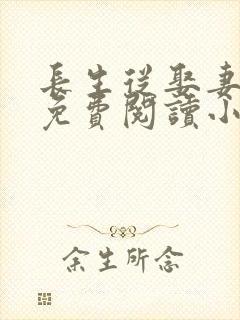 長生從娶妻
免費閱讀小
余生所念